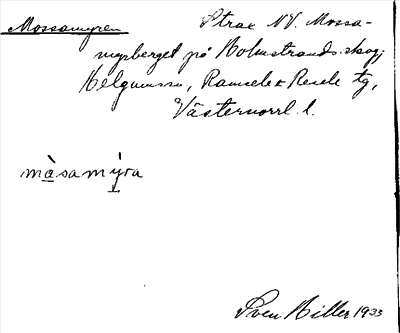 Mossamyren
Strax NV. Mossa-
myrberget på Holmstrands skog,
Helgumssn, Ramsele & Resele tg,
Västernorrl. l.
màsamýra
Sven Hiller 1933